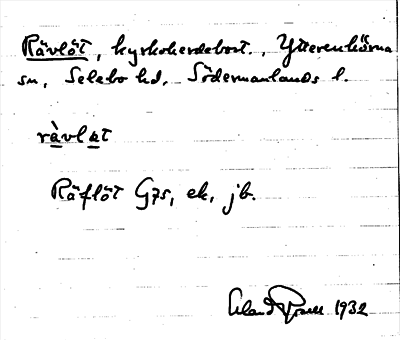 Rävlöt, kyrkoherdebost., Ytterenhörna
sn, Selebo hd, Södermanlands l.
ràvlat
Räflöt G75, ek, jb.
Erland Rosell 1932